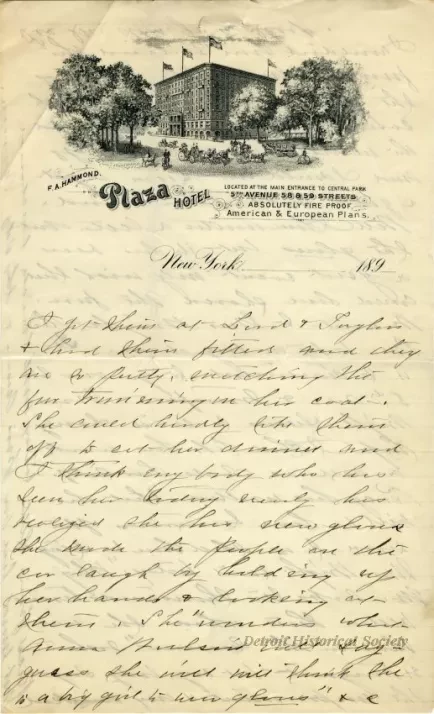 F. A. HAMMOND.
Plaza HOTEL
LOCATED AT THE MAIN ENTRANCE TO CENTRAL PARK
5TH AVENUE 58 & 59 STREETS
ABSOLUTELY FIRE PROOF
American & European Plans.
New York 189
I got them at Lord & Taylors
& had them fitted and they
are so pretty, matching the
fur trimming on her coat.
She could hardly take them
off to eat her dinner and
I think any body who has
seen her today nearly has
realized she has new gloves
She made the people on the
car laugh by holding up
her hands & looking at
them. She "wonders what
Anna
Detroit Historical Society
guess she will think she
is a big girl to wear gloves" & c